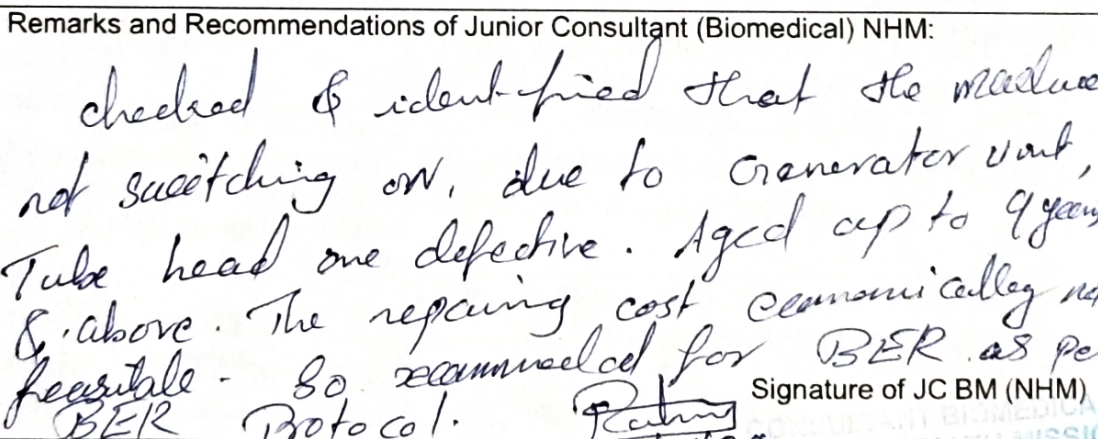 Remarks and Recommendations of Junior Consultant (Biomedical) NHM:
checked & identified that the machine
not switching on, due to Generator unit,
Tube head are defective. Aged up to 9 years
& above. The repairing cost economically no
feasible. So recommended for BER as pe
Signature of JC BM (NHM)
BER Protocol.
CONSULTANT BIOMEDICA